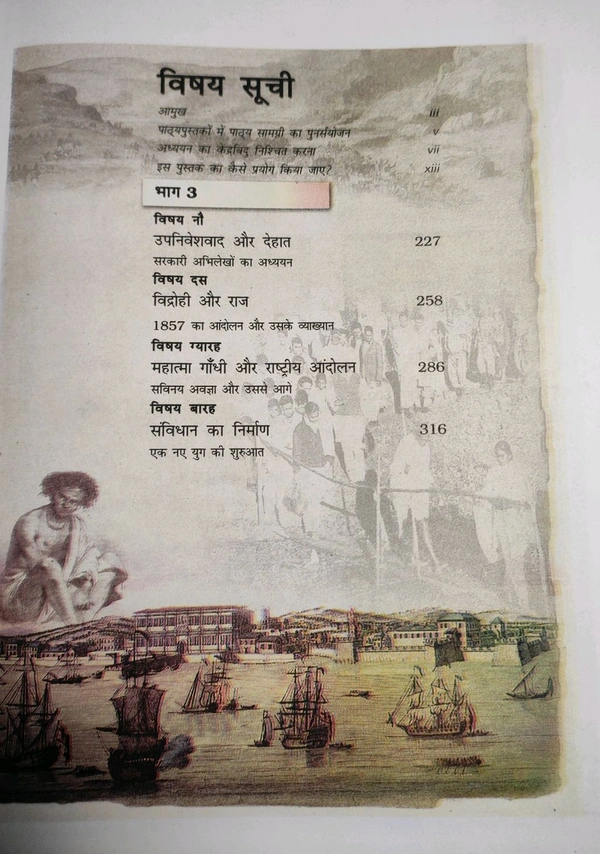 विषय सूची
आमुख iii
पाठ्यपुस्तकों में पाठ्य सामग्री का पुनर्संयोजन v
अध्ययन का केंद्रबिंदु निश्चित करना vii
इस पुस्तक का कैसे प्रयोग किया जाए? xiii
भाग 3
विषय नौ
उपनिवेशवाद और देहात 227
सरकारी अभिलेखों का अध्ययन
विषय दस
विद्रोही और राज 258
1857 का आंदोलन और उसके व्याख्यान
विषय ग्यारह
महात्मा गाँधी और राष्ट्रीय आंदोलन 286
सविनय अवज्ञा और उससे आगे
विषय बारह
संविधान का निर्माण 316
एक नए युग की शुरुआत